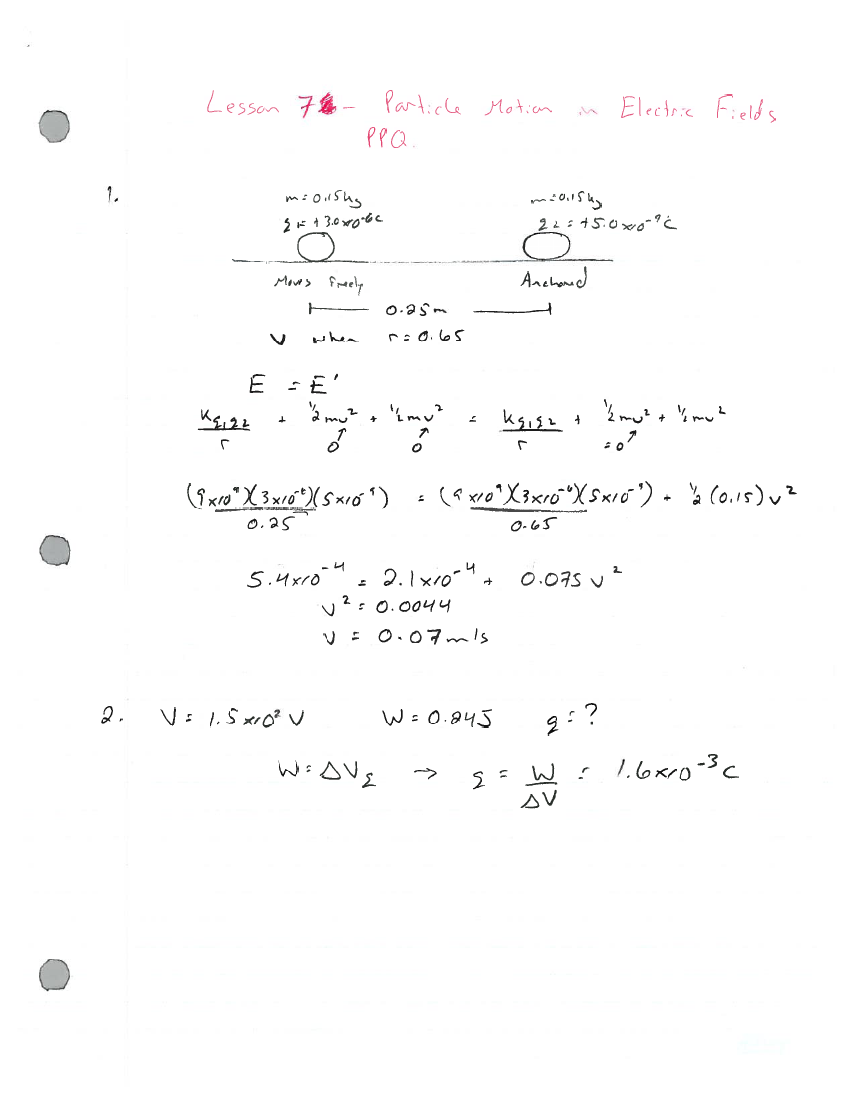 Lesson 7 - Particle Motion in Electric Fields
PPQ.
1.
m = 0.15kg m = 0.15kg
q1 = +3.0x10^-6C q2 = +5.0x10^-9C
Moves Freely Anchored
0.25m
v when r = 0.65
E = E'
kq1q2/r + 1/2mv^2 + 1/2mv^2 = kq1q2/r + 1/2mv^2 + 1/2mv^2
0 0 =0
(9x10^9)(3x10^-6)(5x10^-9)/0.25 = (9x10^9)(3x10^-6)(5x10^-9)/0.65 + 1/2(0.15)v^2
5.4x10^-4 = 2.1x10^-4 + 0.075v^2
v^2 = 0.0044
v = 0.07m/s
2. V = 1.5x10^2 V W = 0.24J q = ?
W = ΔVq → q = W/ΔV = 1.6x10^-3 C